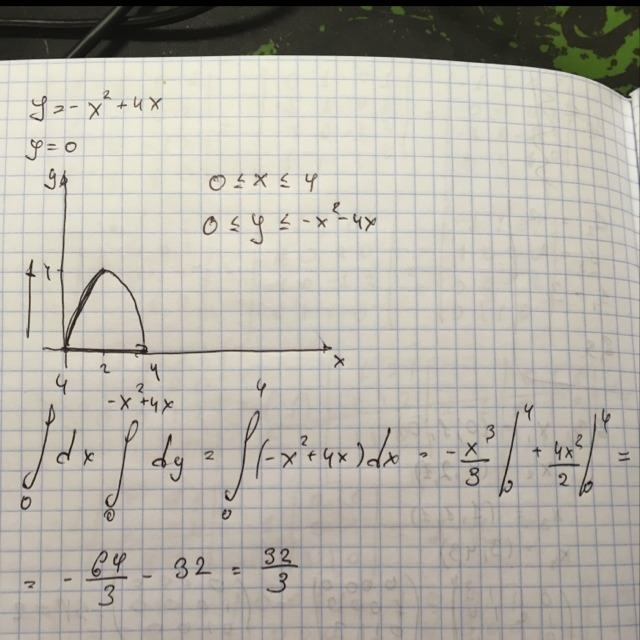 y = -x² + 4x
y = 0
y
0 ≤ x ≤ 4
0 ≤ y ≤ -x² - 4x
4
2 4 x
∫₀⁴ dx ∫₀^(-x²+4x) dy = ∫₀⁴ (-x² + 4x) dx = - x³/3 |₀⁴ + 4x²/2 |₀⁴ =
= - 64/3 - 32 = 32/3